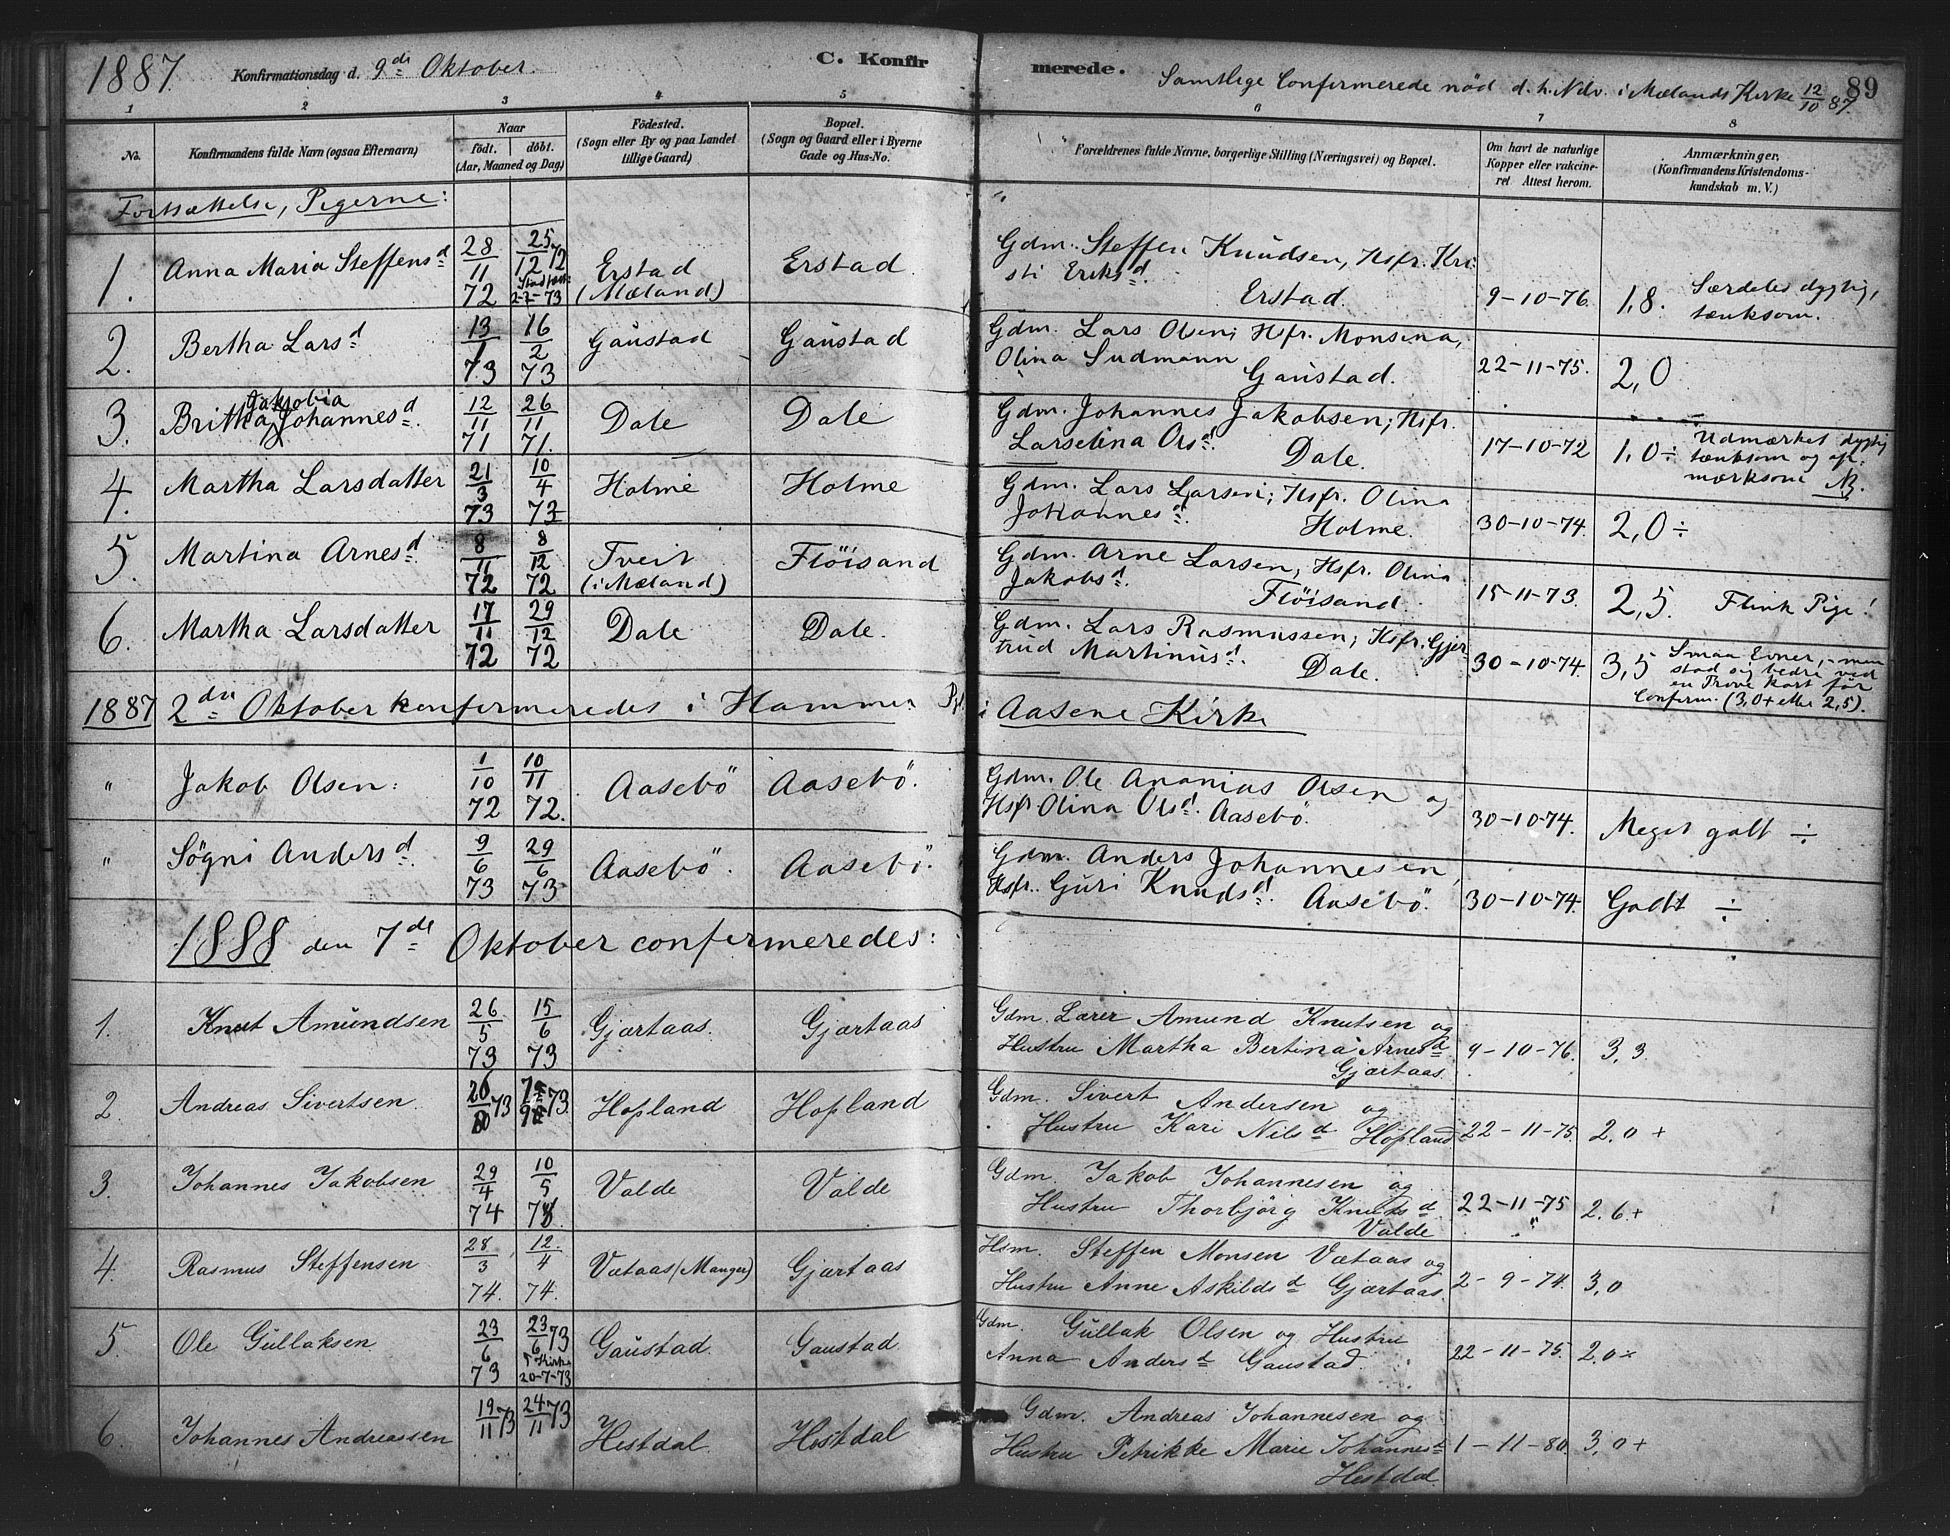 1887. Konfirmationsdag d. 9de Oktober. C. Konfirmerede. Samtlige Confirmerede nød d. h. Ndv. i Mælands Kirke 12/10 87. 89
1 2 3 4 5 6 7 8
No. Konfirmandens fulde Navn (ogsaa Efternavn) Naar født. døbt. (Aar, Maaned og Dag) Fødested. (Sogn eller By og paa Landet tillige Gaard) Bopæl. (Sogn og Gaard eller i Byerne Gade og Hus-No. Forældrenes fulde Navne, borgerlige Stilling (Næringsvei) og Bopæl. Om havt de naturlige Kopper eller vakcineret Attest herom. Anmærkninger. (Konfirmandens Kristendomskundskab m. V.)
Fortsættelse, Pigerne:
1. Anna Maria Steffensd 28/11 72 25/12 72 2-2-73 Erstad (Mæland) Erstad. Gdm. Steffen Knudsen, Hsfr. Kristi Eriksd. Erstad. 9-10-76. 1,8. Særdeles dygtig, tænksom.
2. Bertha Larsd 13/1 73 16/2 73 Gaustad Gaustad Gdm. Lars Olsen; Hsfr. Monsina, Olina Sudmann Gaustad. 22-11-75. 2,0
3. Britha Jakobia Johannesd. 12/11 71 26/11 71. Dale Dale Gdm. Johannes Jakobsen; Hsfr. Larselina Olsd. Dale. 17-10-72 1,0÷ Udmærket dygtig tænksom og opmærksom NB.
4. Martha Larsdatter 21/3 73 10/4 73 Holme Holme Gdm. Lars Larsen; Hsfr. Olina Johannesd. Holme. 30-10-74. 2,0÷
5. Martina Arnesd. 8/11 72 8/12 72 Tveit (i Mæland) Fløisand Gdm. Arne Larsen, Hsfr. Olina Jakobsd. Fløisand. 15-11-73. 2,5. Flink Pige!
6. Martha Larsdatter 17/11 72 29/12 72 Dale Dale. Gdm. Lars Rasmussen; Hsfr. Gjertrud Martinusd. Dale. 30-10-74. 3,5 Smaa Evner, - men stod sig bedre ved en Prøve kort før Confirm. (3,0+ eller 2,5).
1887 2den Oktober konfirmeredes i Hammer Pgl. i Aasene Kirke
" Jakob Olsen: 1/10 72 10/11 72. Aasebø Aasebø. Gdm. Ole Ananias Olsen og Hsfr Olina Olsd. Aasebø. 30-10-74. Meget godt ÷
" Søgni Andersd. 9/6 73 29/6 73 Aasebø. Aasebø. Gdm. Anders Johannesen, Hsfr. Guri Knudsd. Aasebø. 30-10-74. Godt ÷
1888 den 7de Oktober confirmeredes:
1. Knut Amundsen 26/5 73 15/6 73 Gjærtaas. Gjærtaas Gdm. Lærer Amund Knutsen og Hustru Martha Bertina Arnesd Gjærtaas. 9-10-76. 3,3.
2. Andreas Sivertsen. 73 73. Hopland Hopland Gdm. Sivert Andersen og Hustru Kari Nilsd Hopland 22-11-75. 2,0+
3. Johannes Jakobsen 29/4 74 10/5 Valde Valde Gdm. Jakob Johannesen og Hustru Thorbjörg Knutsd. Valde 22-11-75 " 2.6.+
4. Rasmus Steffensen 28/3 74. 12/4 74. Vætaas (Manger) Gjærtaas Hsm. Steffen Monsen Vætaas og Hustru Anne Askildsd Gjærtaas. 2-9-74. 3,0
5. Ole Gullaksen 23/6 73 23/6 73 i Kirke 20-7-73 Gaustad. Gaustad Gdm. Gullak Olsen og Hustru Anna Andersd Gaustad. 22-11-75. 2,0×
6. Johannes Andreassen 19/11 73 24/11 73 Hestdal. Hestdal Gdm. Andreas Johannesen og Hustru Petrikke Marie Johannesd Hestdal. 1-11-80. 3,0+